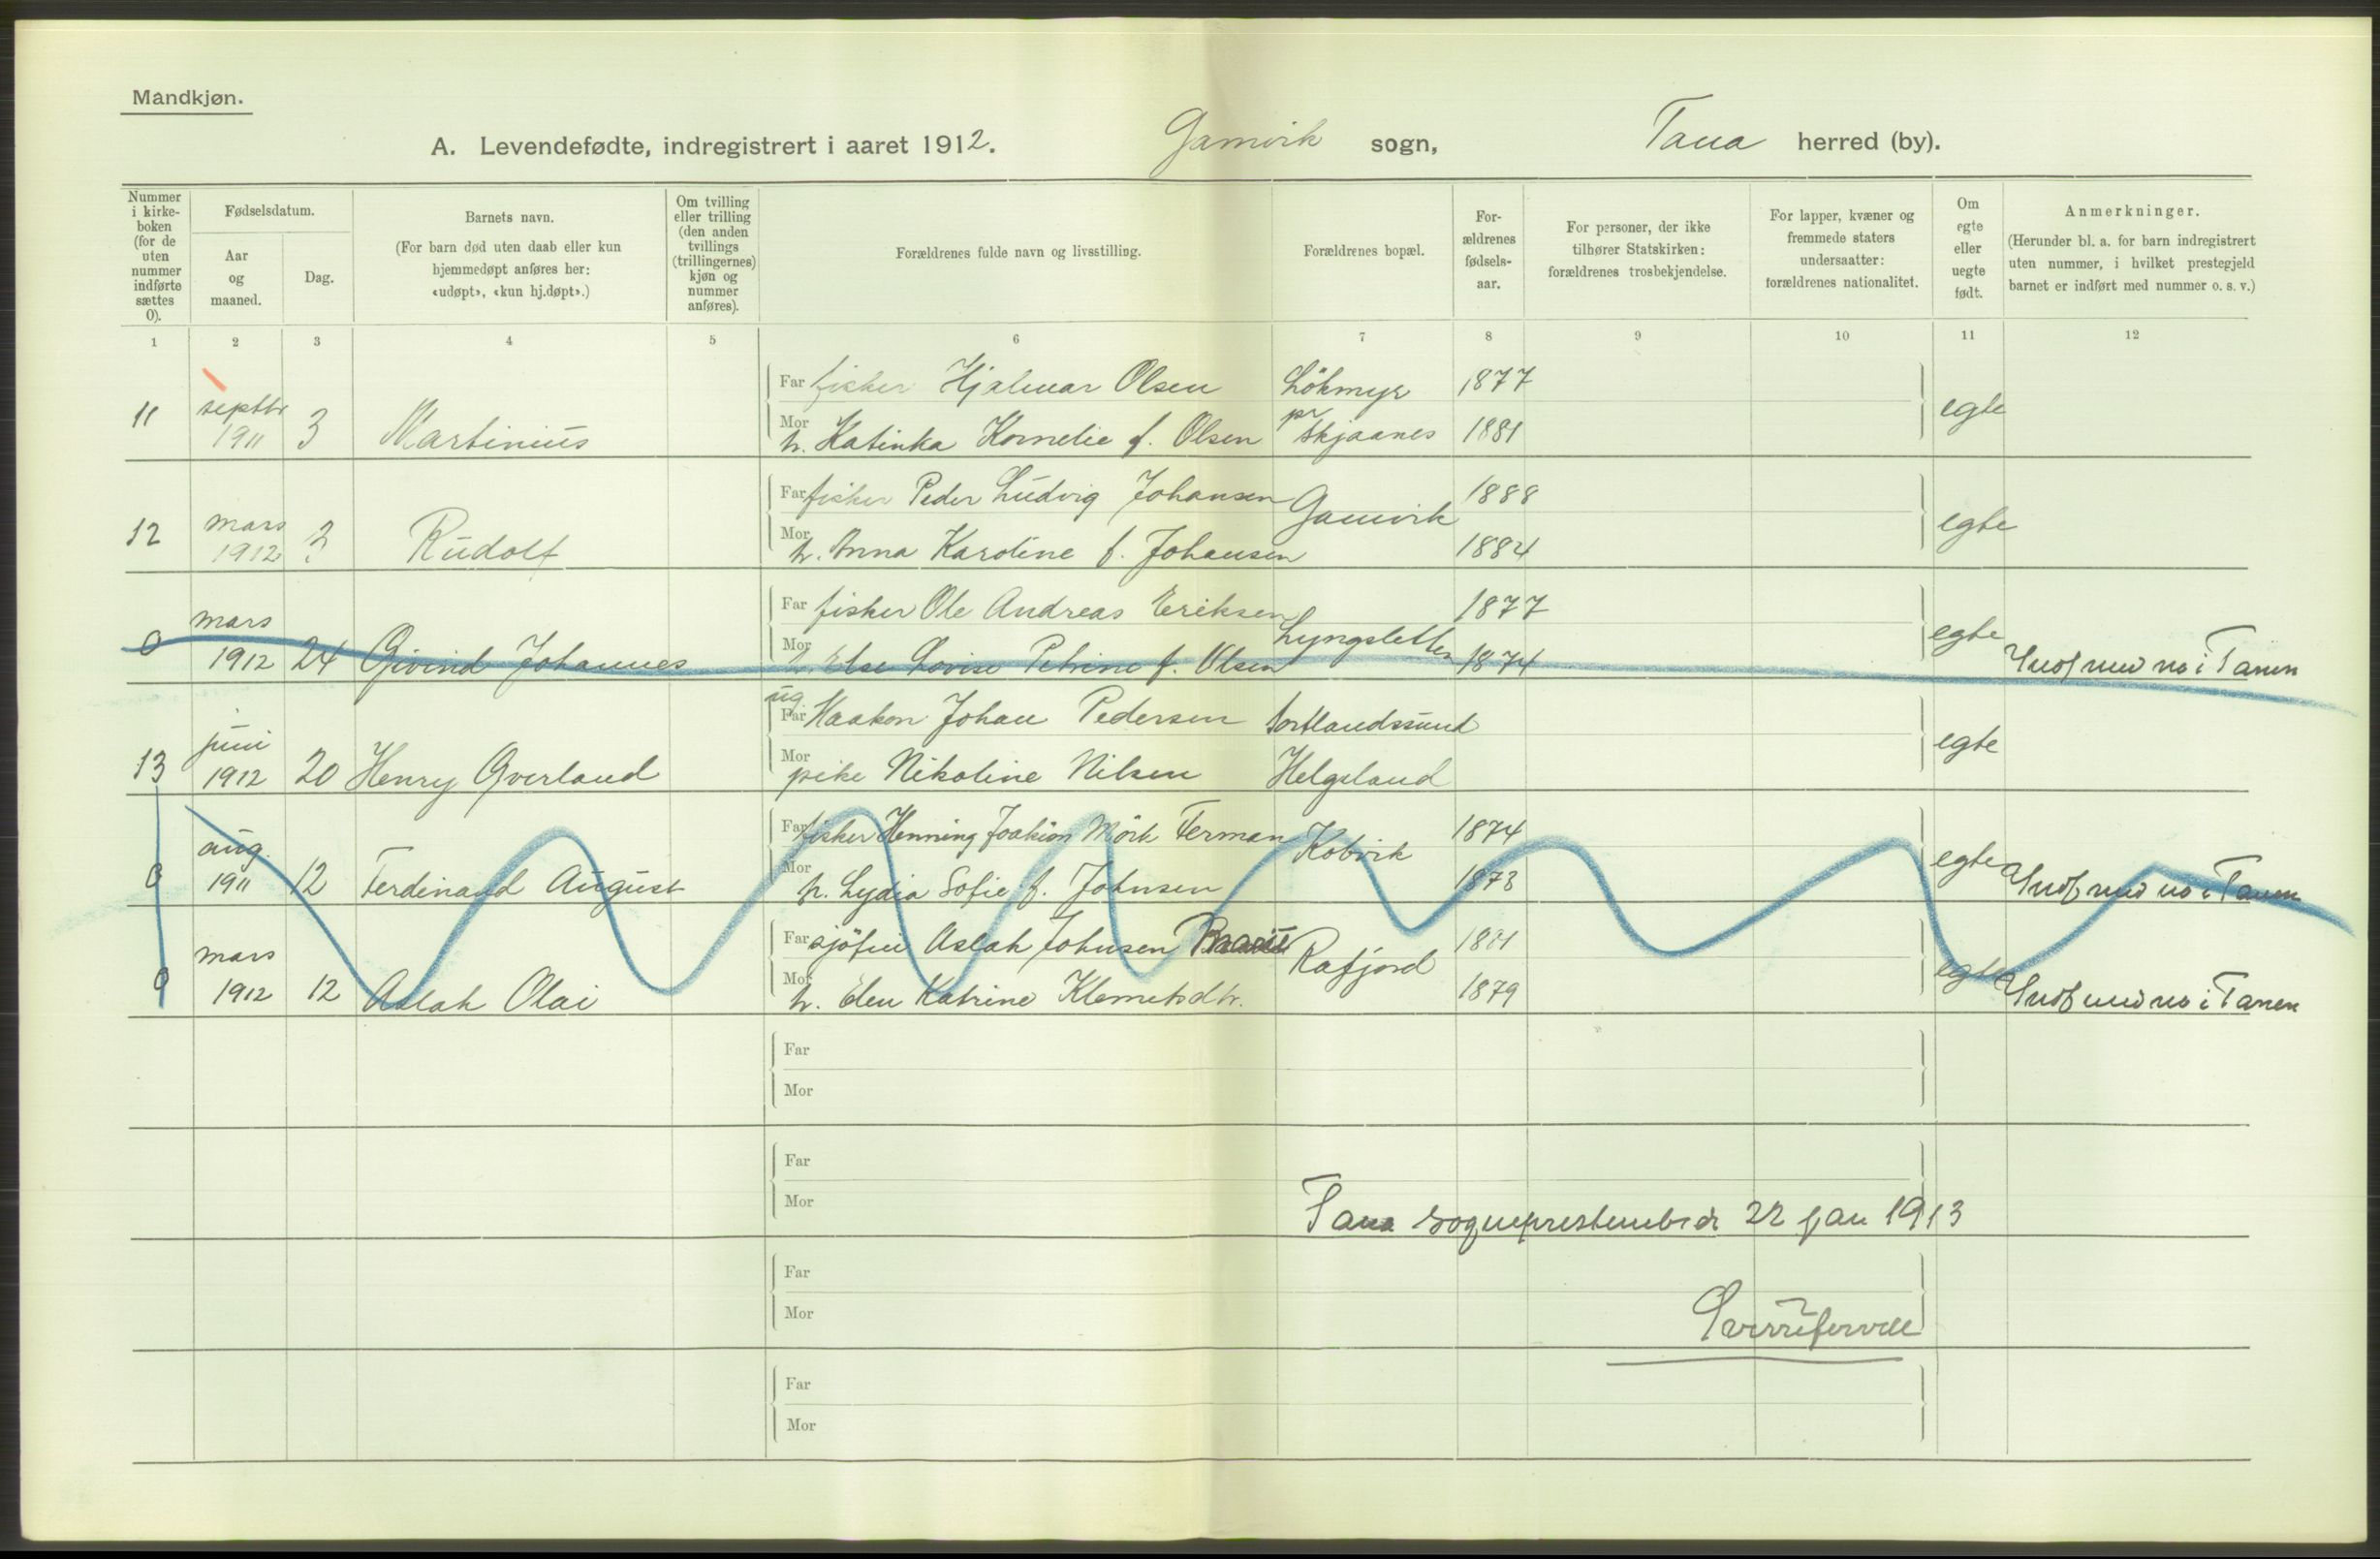 Mandkjøn.
A. Levendefødte, indregistrert i aaret 1912. Gamvik sogn, Tana herred (by).
Nummer i kirke-boken (for de uten nummer indførte sættes 0).
Fødselsdatum.
Aar og maaned.
Dag.
Barnets navn.
(For barn død uten daab eller kun hjemmedøpt anføres her: «udøpt», «kun hj.døpt».)
Om tvilling eller trilling (den anden tvillings (trillingernes) kjøn og nummer anføres).
Forældrenes fulde navn og livsstilling.
Forældrenes bopæl.
For-ældrenes fødsels-aar.
For personer, der ikke tilhører Statskirken: forældrenes trosbekjendelse.
For lapper, kvæner og fremmede staters undersaatter: forældrenes nationalitet.
Om egte eller uegte født.
Anmerkninger.
(Herunder bl. a. for barn indregistrert uten nummer, i hvilket prestegjeld barnet er indført med nummer o. s. v.)
1 2 3 4 5 6 7 8 9 10 11 12
Far fisker Hjalmar Olsen Lökmyr 1877
11 septbr 1911 3 Martinius egte
Mor h. Katinka Kornelie f. Olsen pr Skjaanes 1881
Far fisker Peder Ludvig Johansen Gamvik 1888
12 mars 1912 2 Rudolf egte
Mor h. Anna Karoline f. Johansen 1884
Far fisker Ole Andreas Eriksen Lyngsletten 1877
0 mars 1912 24 Øivind Johannes egte
Mor h. Else Lovise Petrine f. Olsen 1874 Indf med no i Tanen
Far ug. Haakon Johan Pedersen Sortlandssund
13 juni 1912 20 Henry Øverland egte
Mor pike Nikoline Nilsen Helgeland
Far fisker Henning Joakim Mörk Ferman Kobvik 1874
0 aug. 1911 12 Ferdinand August egte
Mor h. Lydia Sofie f. Johnsen 1873 Indf med no i Tanen
Far sjöfin Aslak Johnsen Rafjord 1881
0 mars 1912 12 Aslak Olai egte
Mor h. Elen Katrine Klemetsdtr. 1879 Indf med no i Tanen
Far
Mor
Far
Mor
Tana sogneprestembede 22 jan 1913
Far
Mor
Far
Mor